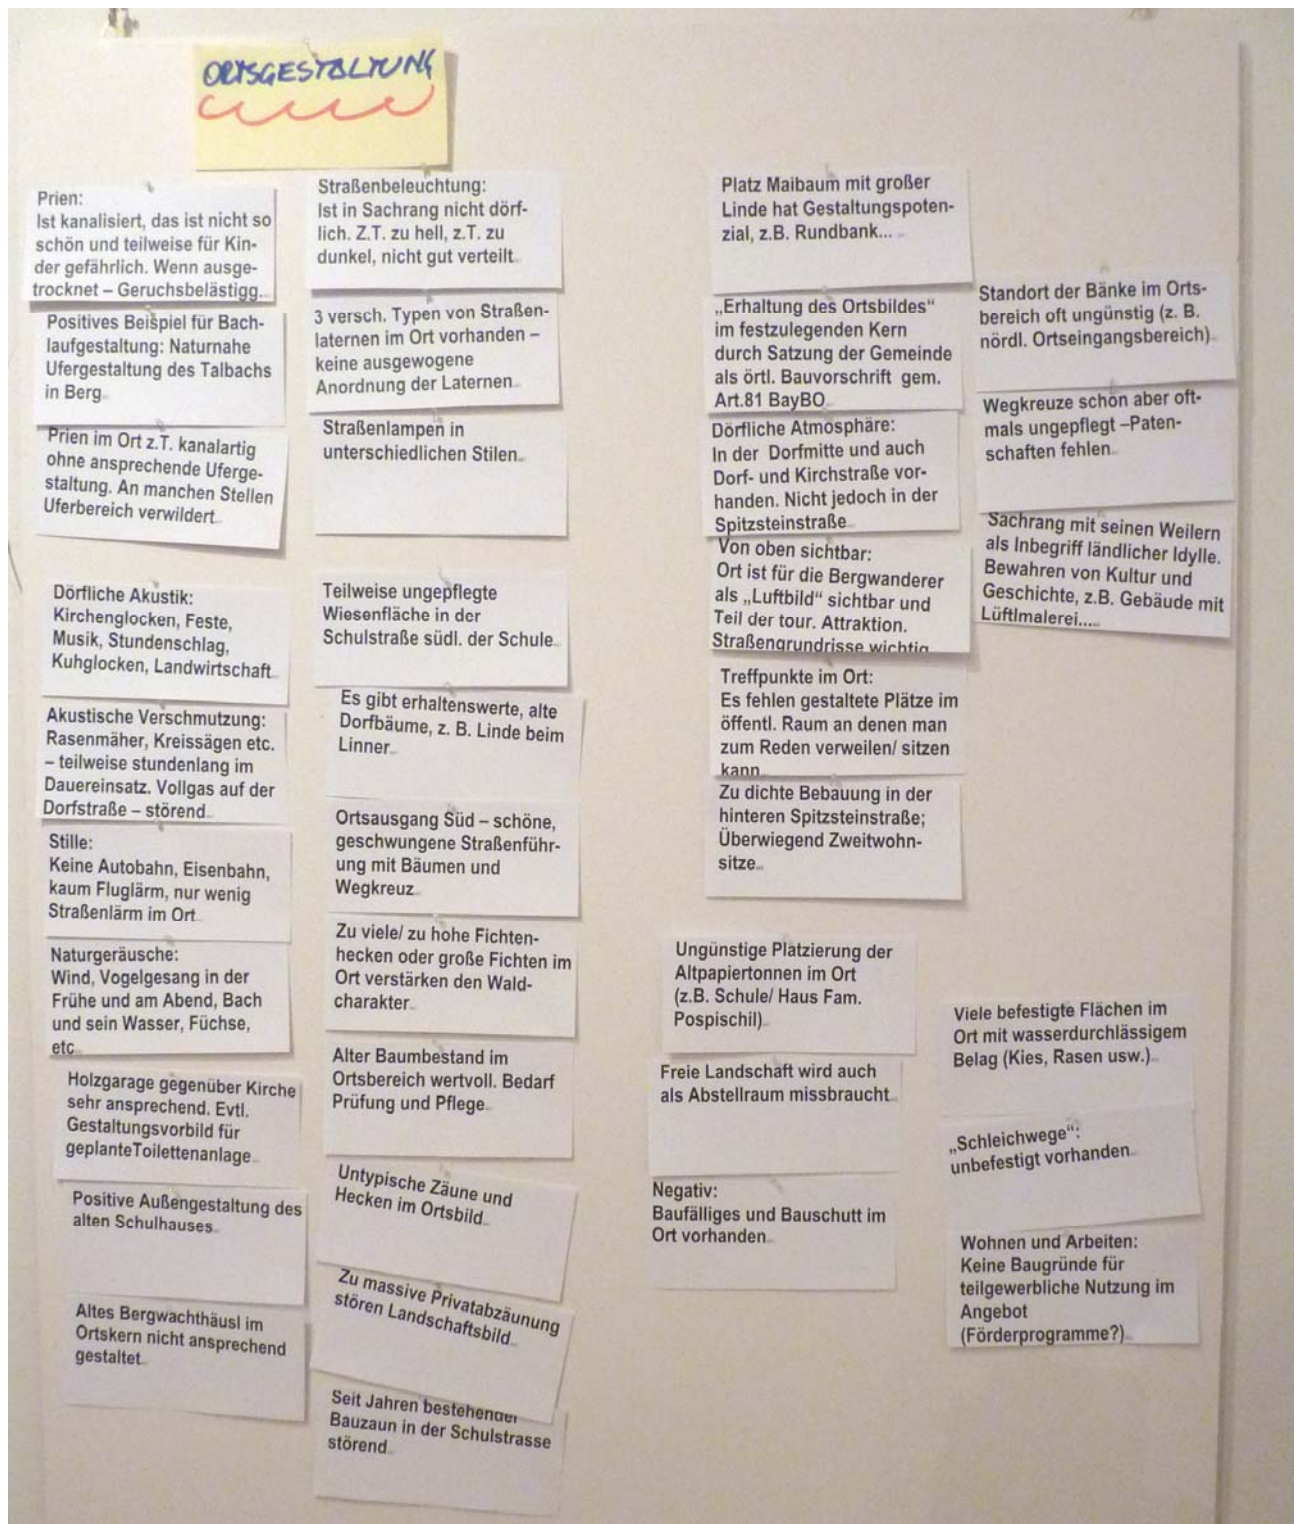 ORTSGESTALTUNG
Prien:
Ist kanalisiert, das ist nicht so
schön und teilweise für Kin-
der gefährlich. Wenn ausge-
trocknet – Geruchsbelästigg.
Positives Beispiel für Bach-
laufgestaltung: Naturnahe
Ufergestaltung des Talbachs
in Berg
Prien im Ort z.T. kanalartig
ohne ansprechende Uferge-
staltung. An manchen Stellen
Uferbereich verwildert
Dörfliche Akustik:
Kirchenglocken, Feste,
Musik, Stundenschlag,
Kuhglocken, Landwirtschaft
Akustische Verschmutzung:
Rasenmäher, Kreissägen etc.
– teilweise stundenlang im
Dauereinsatz. Vollgas auf der
Dorfstraße – störend
Stille:
Keine Autobahn, Eisenbahn,
kaum Fluglärm, nur wenig
Straßenlärm im Ort
Naturgeräusche:
Wind, Vogelgesang in der
Frühe und am Abend, Bach
und sein Wasser, Füchse,
etc
Holzgarage gegenüber Kirche
sehr ansprechend. Evtl.
Gestaltungsvorbild für
geplanteToilettenanlage
Positive Außengestaltung des
alten Schulhauses
Altes Bergwachthäusl im
Ortskern nicht ansprechend
gestaltet
Straßenbeleuchtung:
Ist in Sachrang nicht dörf-
lich. Z.T. zu hell, z.T. zu
dunkel, nicht gut verteilt
3 versch. Typen von Straßen-
laternen im Ort vorhanden –
keine ausgewogene
Anordnung der Laternen
Straßenlampen in
unterschiedlichen Stilen
Teilweise ungepflegte
Wiesenfläche in der
Schulstraße südl. der Schule
Es gibt erhaltenswerte, alte
Dorfbäume, z. B. Linde beim
Linner
Ortsausgang Süd – schöne,
geschwungene Straßenführ-
ung mit Bäumen und
Wegkreuz
Zu viele/ zu hohe Fichten-
hecken oder große Fichten im
Ort verstärken den Wald-
charakter
Alter Baumbestand im
Ortsbereich wertvoll. Bedarf
Prüfung und Pflege
Untypische Zäune und
Hecken im Ortsbild
Zu massive Privatabzäunung
stören Landschaftsbild
Seit Jahren bestehender
Bauzaun in der Schulstrasse
störend
Platz Maibaum mit großer
Linde hat Gestaltungspoten-
zial, z.B. Rundbank...
„Erhaltung des Ortsbildes“
im festzulegenden Kern
durch Satzung der Gemeinde
als örtl. Bauvorschrift gem.
Art.81 BayBO
Dörfliche Atmosphäre:
In der Dorfmitte und auch
Dorf- und Kirchstraße vor-
handen. Nicht jedoch in der
Spitzsteinstraße
Von oben sichtbar:
Ort ist für die Bergwanderer
als „Luftbild“ sichtbar und
Teil der tour. Attraktion.
Straßengrundrisse wichtig
Treffpunkte im Ort:
Es fehlen gestaltete Plätze im
öffentl. Raum an denen man
zum Reden verweilen/ sitzen
kann
Zu dichte Bebauung in der
hinteren Spitzsteinstraße;
Überwiegend Zweitwohn-
sitze
Ungünstige Platzierung der
Altpapiertonnen im Ort
(z.B. Schule/ Haus Fam.
Pospischil)
Freie Landschaft wird auch
als Abstellraum missbraucht
Negativ:
Baufälliges und Bauschutt im
Ort vorhanden
Standort der Bänke im Orts-
bereich oft ungünstig (z. B.
nördl. Ortseingangsbereich)
Wegkreuze schön aber oft-
mals ungepflegt –Paten-
schaften fehlen
Sachrang mit seinen Weilern
als Inbegriff ländlicher Idylle.
Bewahren von Kultur und
Geschichte, z.B. Gebäude mit
Lüftlmalerei....
Viele befestigte Flächen im
Ort mit wasserdurchlässigem
Belag (Kies, Rasen usw.)
„Schleichwege“:
unbefestigt vorhanden
Wohnen und Arbeiten:
Keine Baugründe für
teilgewerbliche Nutzung im
Angebot
(Förderprogramme?)